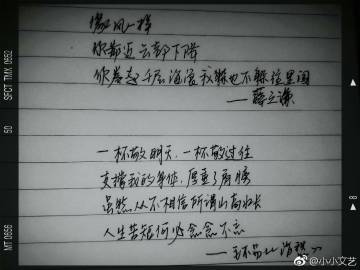 像风一样
你靠近云都下降
你卷起千层海浪我躲也不躲往里闯
——薛之谦
一杯敬明天,一杯敬过往
支撑我的身体,厚重了肩膀
虽然从不相信所谓山高水长
人生苦短何必念念不忘
——毛不易《消愁》
SFCT TMX 0652
50
MT 0656
@小小文艺